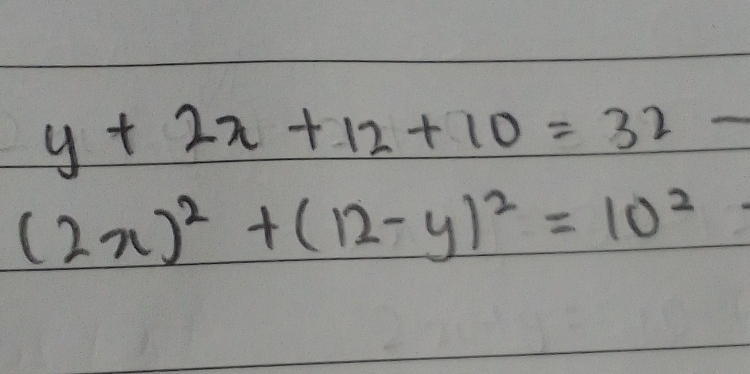 y + 2x + 12 + 10 = 32 —
(2x)² + (12 - y)² = 10² -